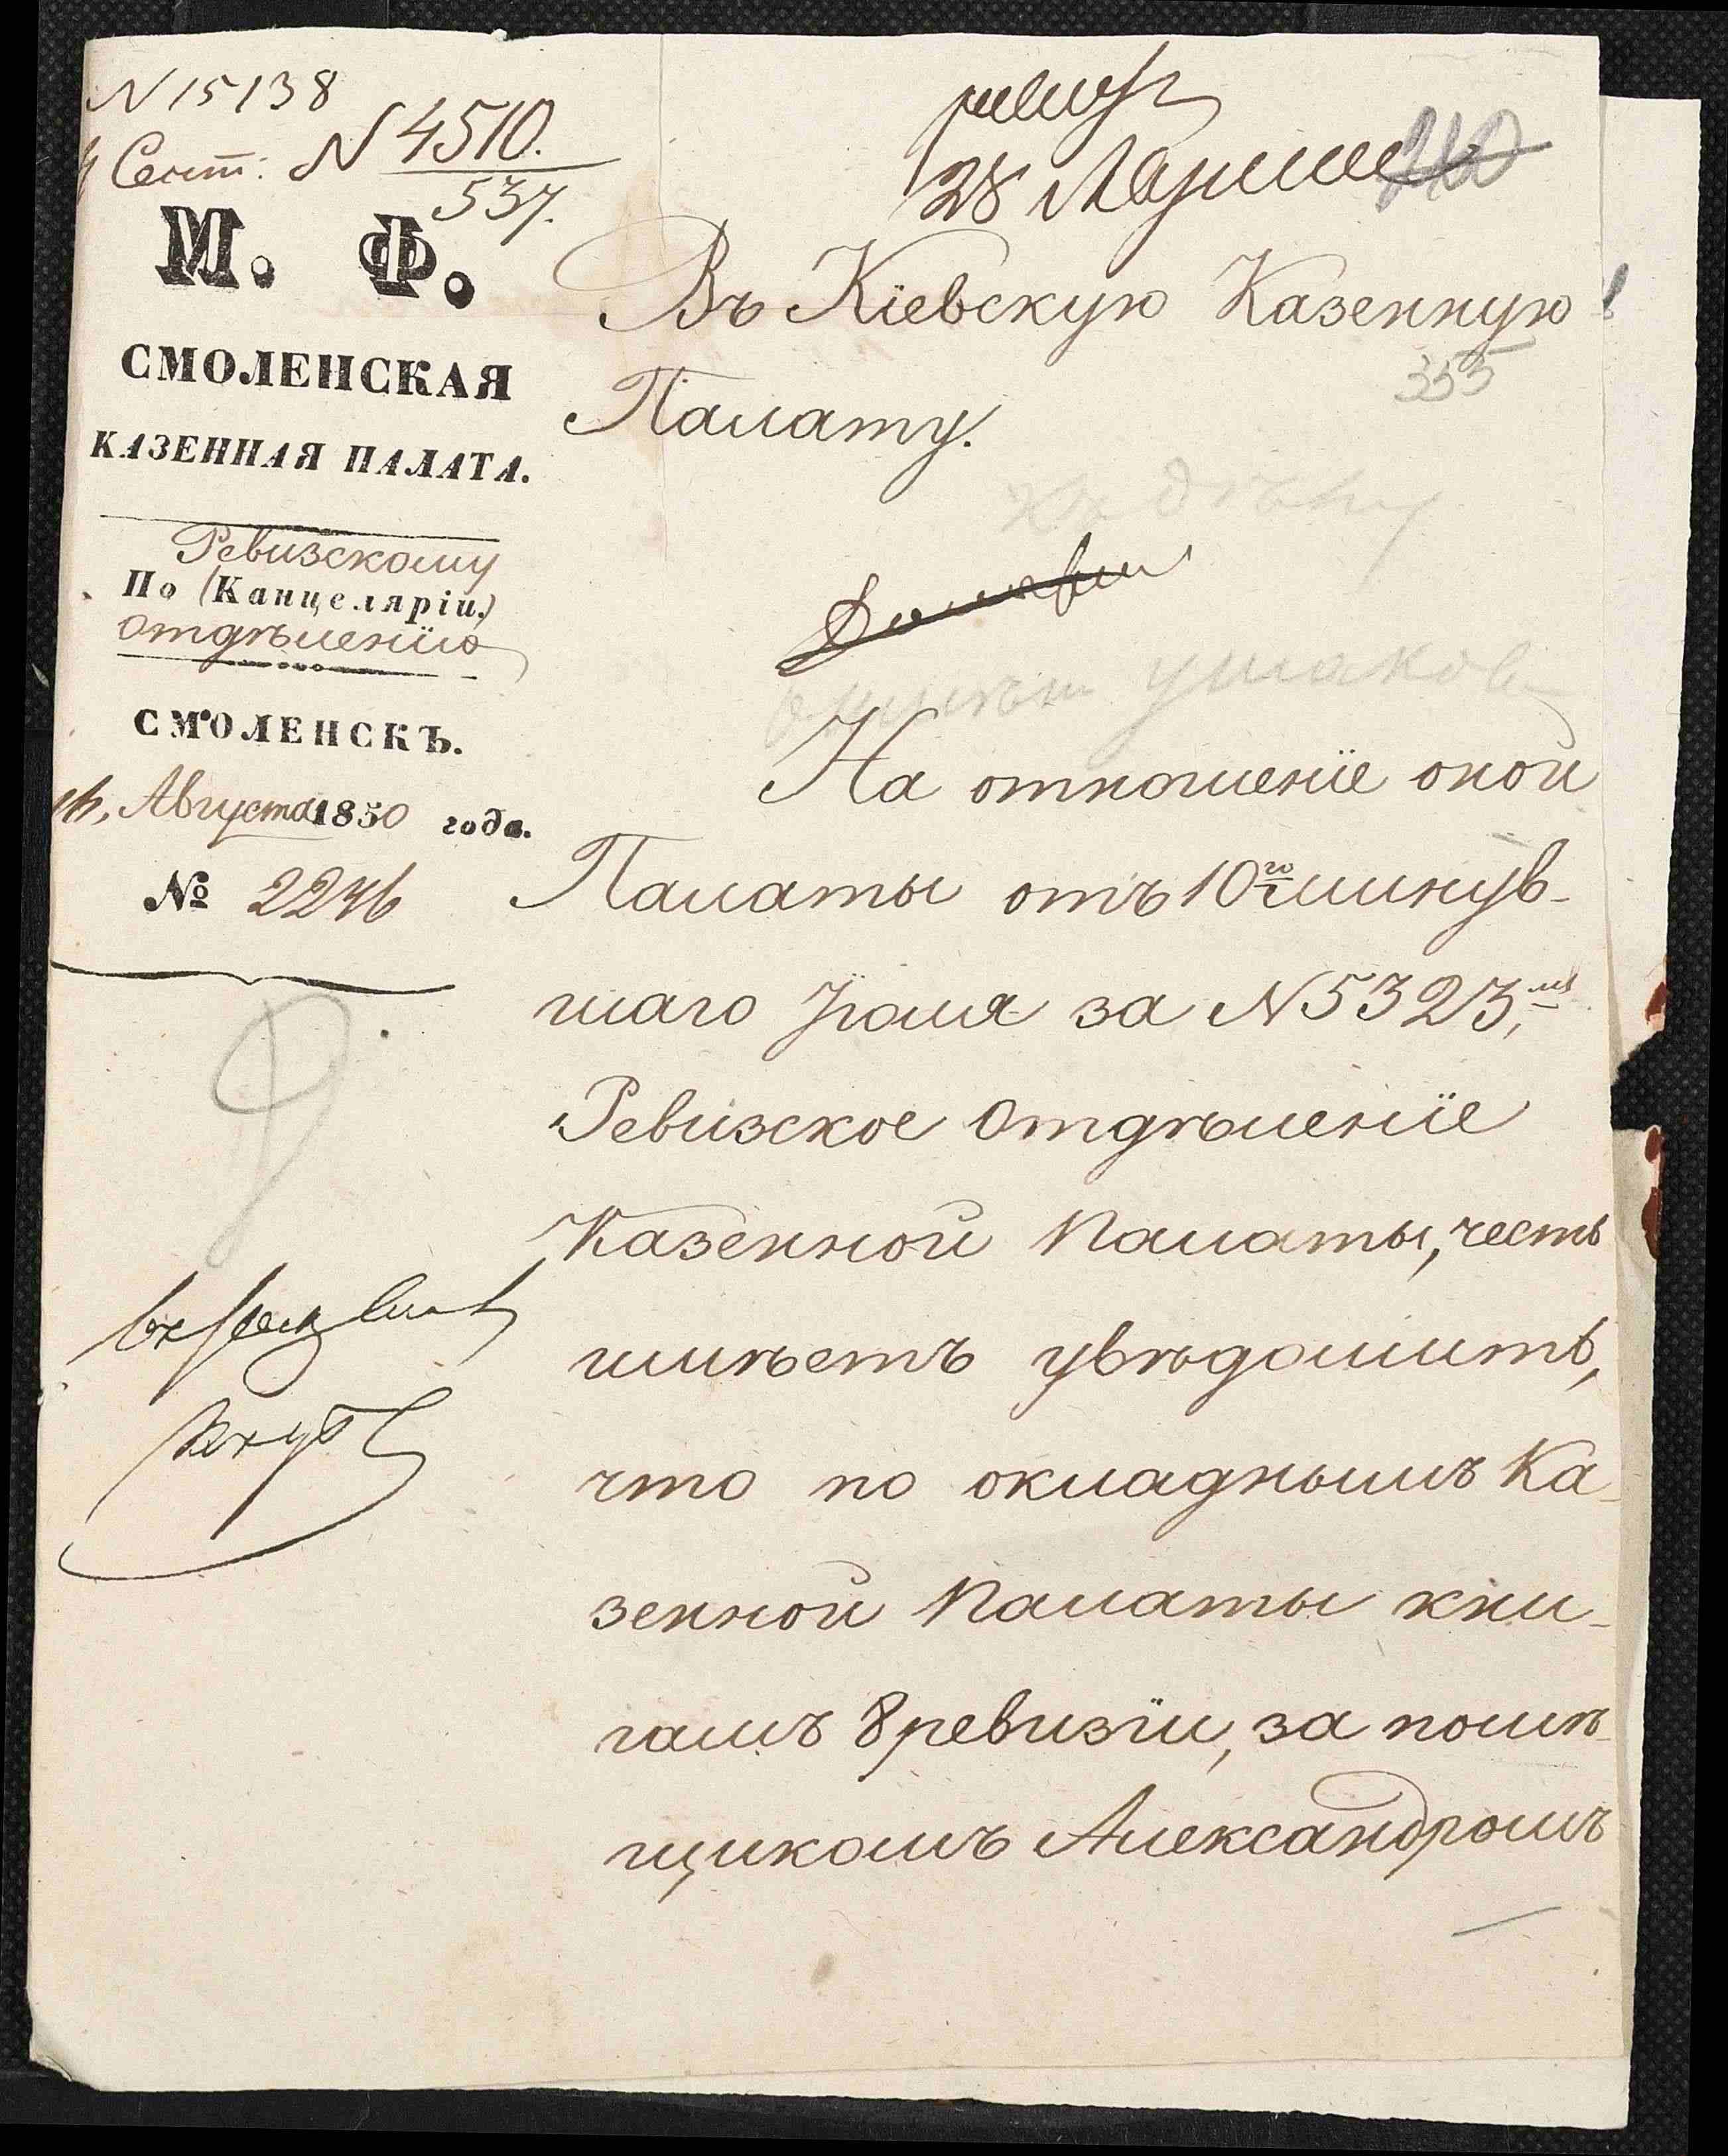 N 15138
Сент: N 4510.
537.
28 Марта
240
М. Ф.
СМОЛЕНСКАЯ
КАЗЕННАЯ ПАЛАТА.
Ревизскому
По (Канцеляріи.)
Отдѣленію
СМОЛЕНСКЪ.
Августа 1850 года.
№ 2246
Въ Кіевскую Казенную
355
Палату.
Къ дѣлу
Ушакова
На отношеніе оной
Палаты отъ 10го минув-
шаго Іюля за N 5323,мъ
Ревизское Отдѣленіе
Казенной Палаты, честь
имѣетъ увѣдомить,
что по окладнымъ Ка-
зенной Палаты кни-
гамъ 8 ревизіи, за помѣ-
щикомъ Александромъ